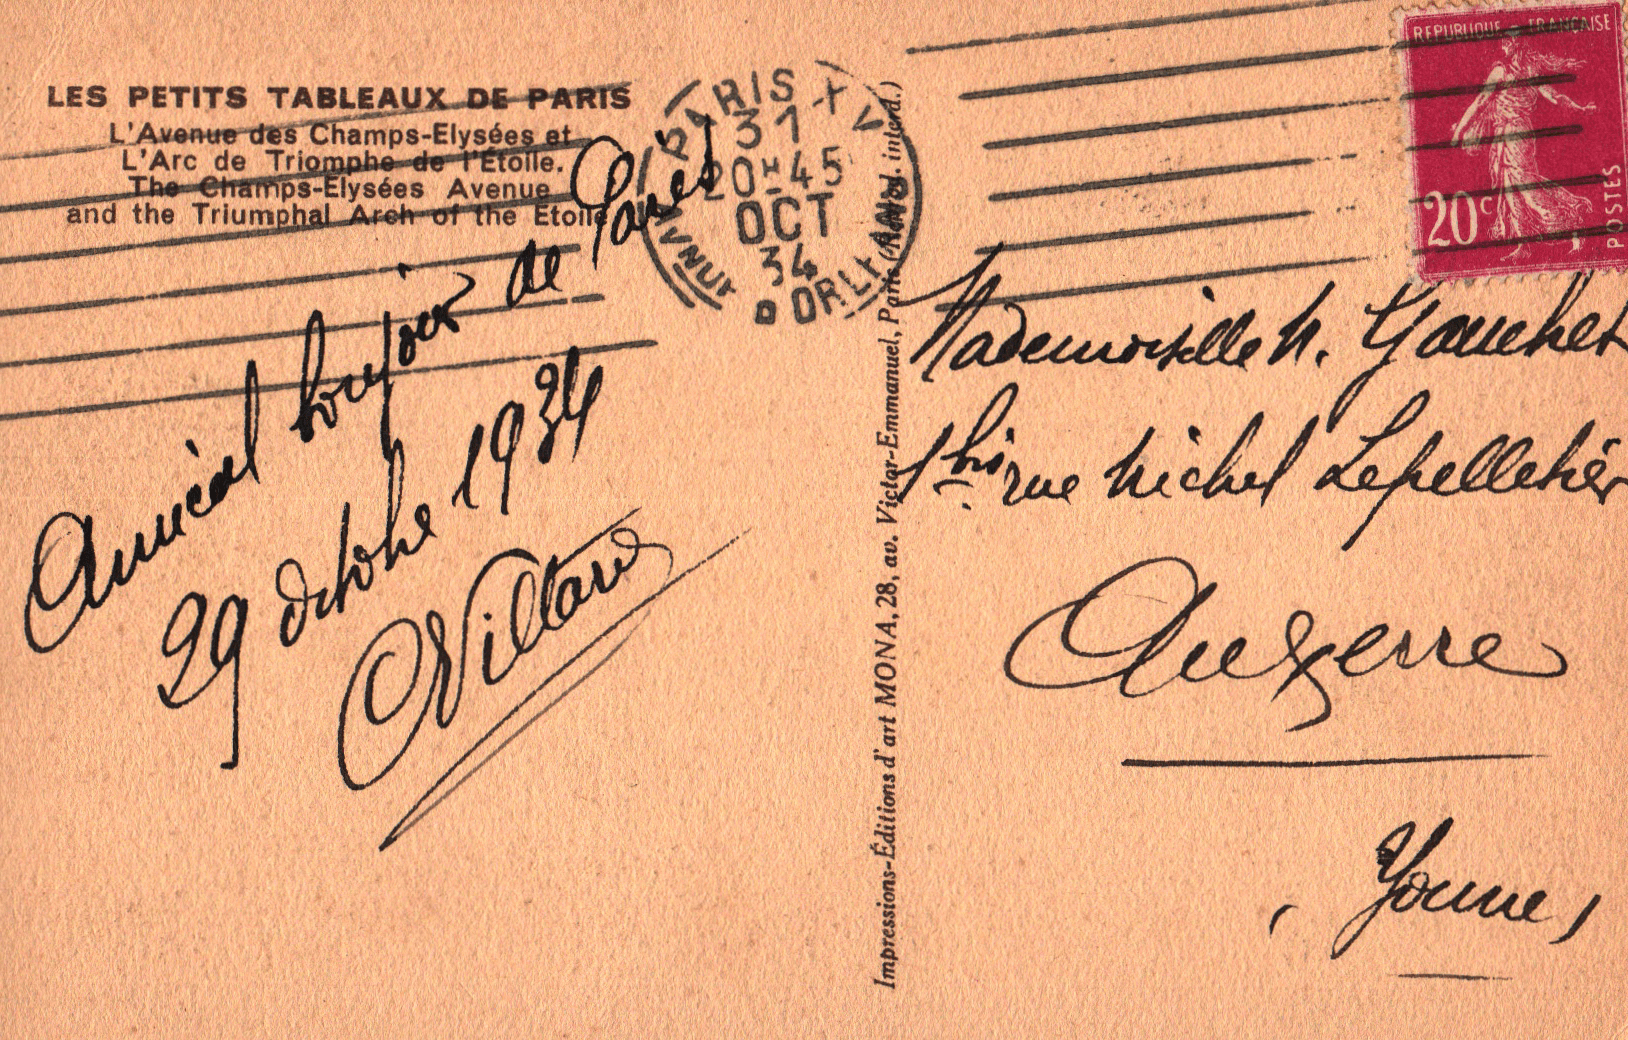 LES PETITS TABLEAUX DE PARIS
L'Avenue des Champs-Elysées et
L'Arc de Triomphe de l'Étoile.
The Champs-Élysées Avenue
and the Triumphal Arch of the Etoile
PARIS XV
31
20H45
OCT
34
D ORLEANS
REPUBLIQUE FRANÇAISE
20c
POSTES
Amical bonjour de Paris
29 octobre 1934
Villard
Impressions-Éditions d'art MONA, 28, av. Victor-Emmanuel, Paris intend.)
Mademoiselle M. Gauchet
1 bis rue Michel Lepelletier
Auxerre
(Yonne)